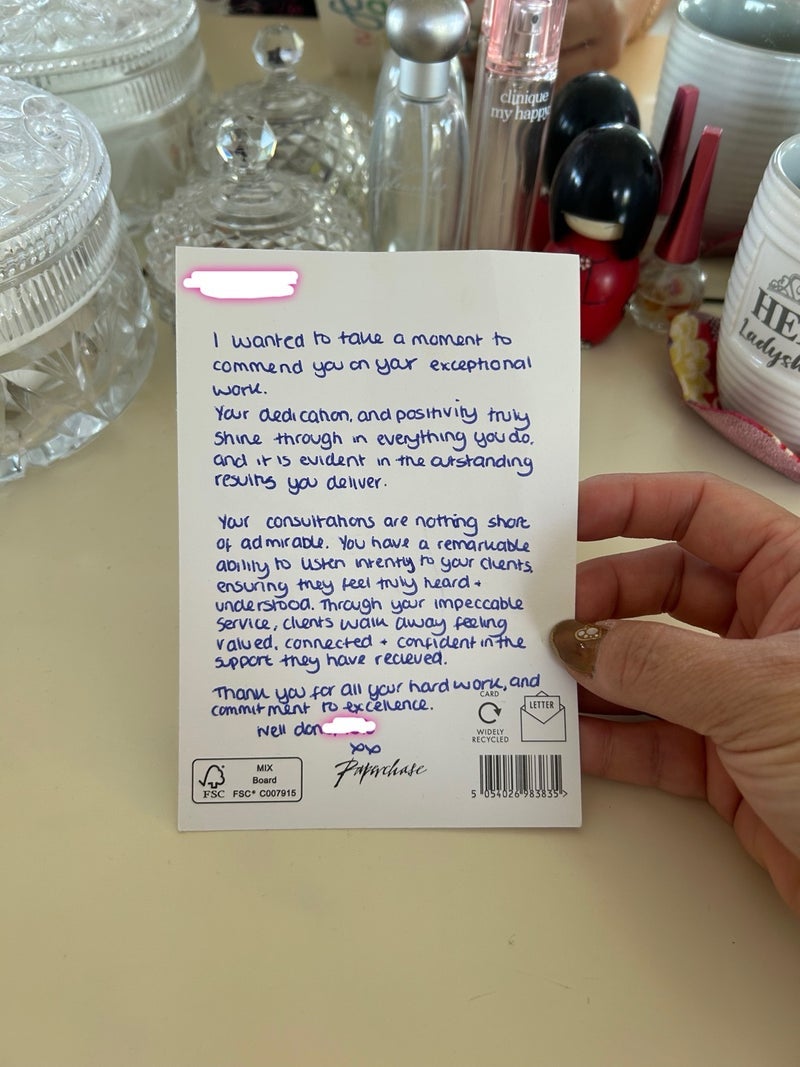 clinique
my happy
HE
Ladysh
I wanted to take a moment to
commend you on your exceptional
work.
Your dedication, and positivity truly
shine through in everything you do,
and it is evident in the outstanding
results you deliver.
Your consultations are nothing short
of admirable. You have a remarkable
ability to listen intently to your clients,
ensuring they feel truly heard +
understood. Through your impeccable
service, clients walk away feeling
valued, connected + confident in the
support they have recieved.
Thank you for all your hard work, and
commitment to excellence.
Well don
xxx
CARD
WIDELY
RECYCLED
LETTER
FSC
MIX
Board
FSC® C007915
Paperchase
5 054026 983835 >